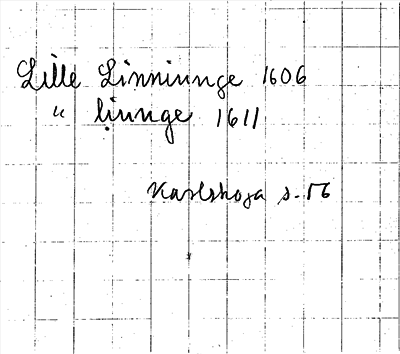 Lille Linniunge 1606
" liunge 1611
Karlskoga s. 56